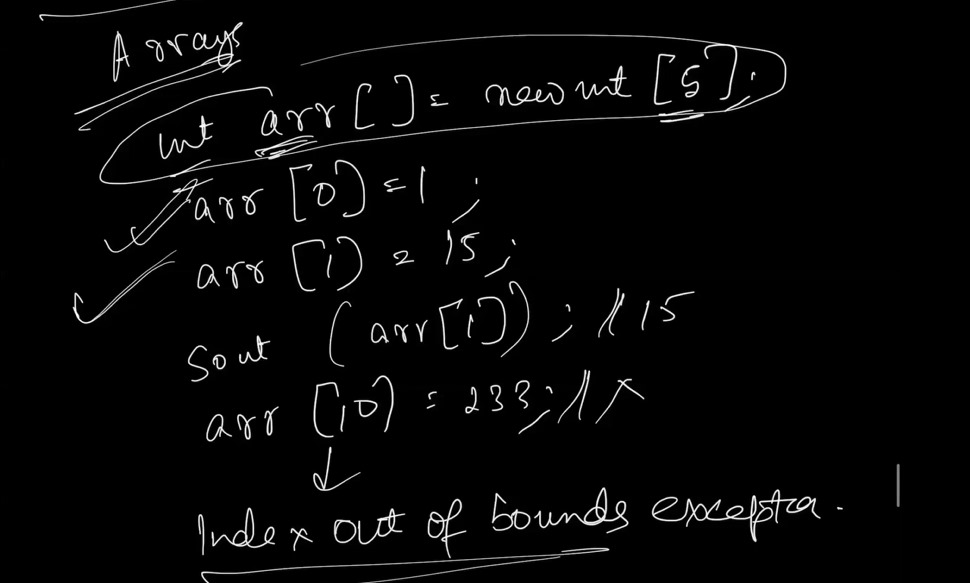 Arrays
int arr[] = new int [5];
arr [0] = 1 ;
arr [1] = 15 ;
Sout (arr[1]) ; // 15
arr [10] = 233; // x
Index out of bounds